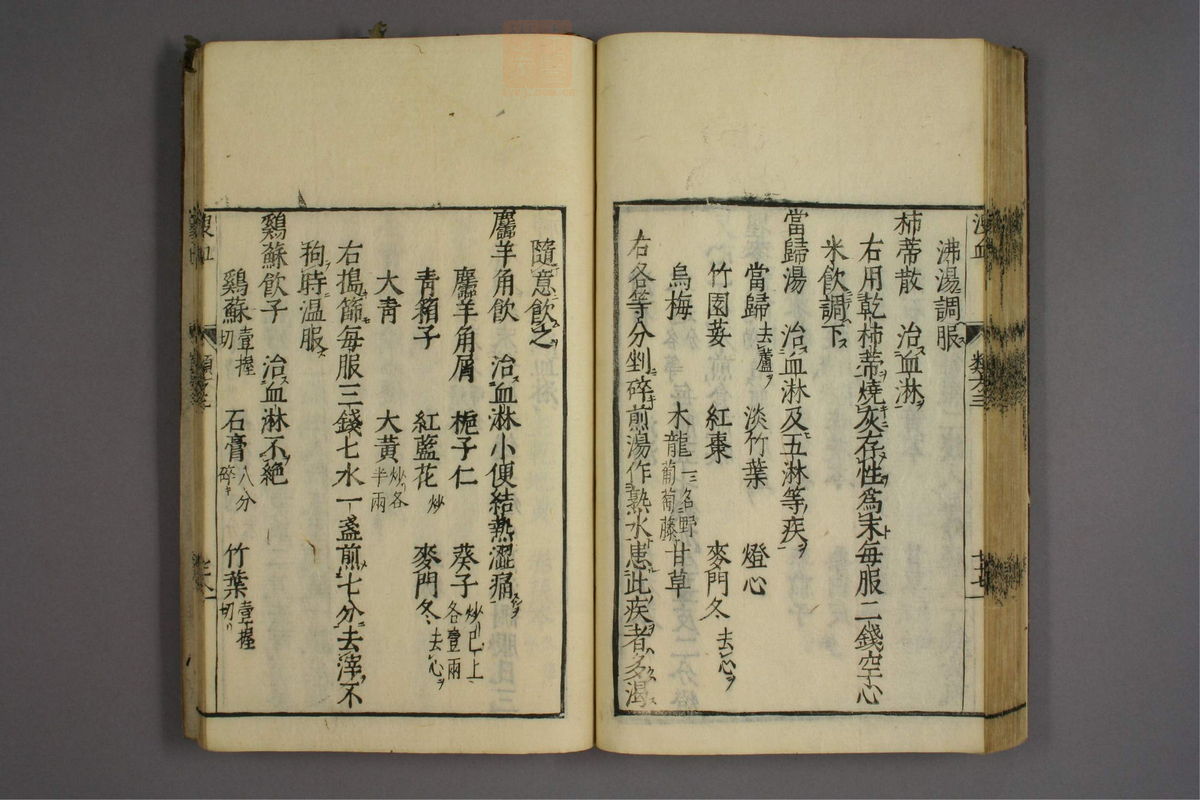 沸湯調服
柿蒂散　治血淋
右用乾柿蒂燒灰存性爲末每服二錢空心
米飲調下
當歸湯　治血淋及五淋等疾
當歸去蘆　淡竹葉　燈心
竹園荽　紅棗　麥門冬去心
烏梅　木龍一名野葡萄藤　甘草
右各等分剉碎煎湯作熟水患此疾者多渴
隨意飲之
麢羊角飲　治血淋小便結熱澀痛
麢羊角屑　梔子仁　葵子炒已上各壹兩
青葙子　紅藍花炒　麥門冬去心
大青　大黃炒各半兩
右搗篩每服三錢七水一盞煎七分去滓不
拘時温服
鷄蘇飲子　治血淋不絶
鷄蘇壹握切　石膏八分碎　竹葉壹握切